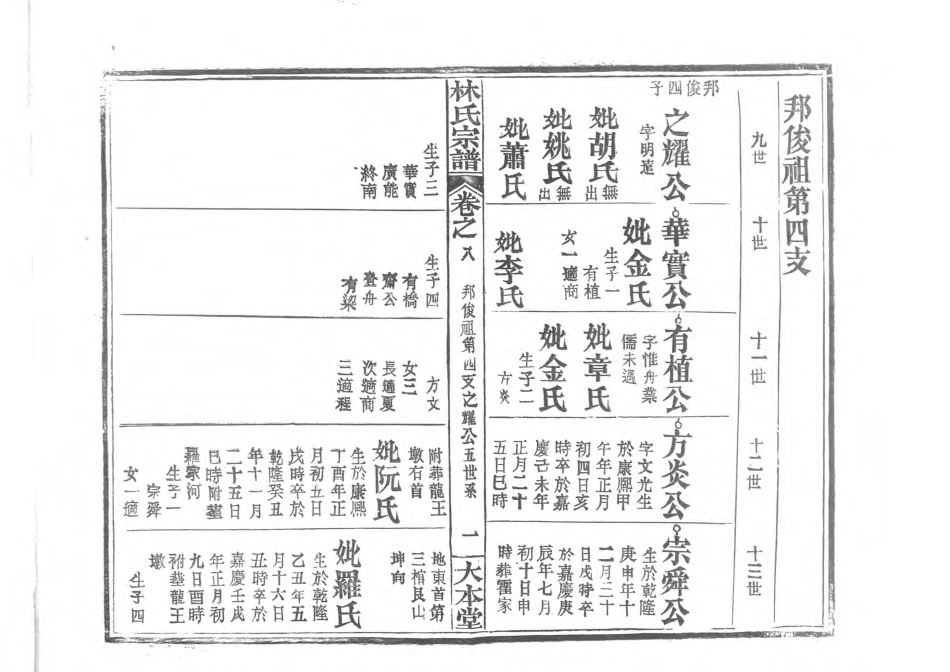 邦俊祖第四支
九世
十世
十一世
十二世
十三世
邦俊四子
之耀公
字明遠
妣胡氏
無出
妣姚氏
無出
妣蕭氏
生子三
華實
廣能
終南
華實公
妣金氏
生子一
有植
女一適商
妣李氏
生子四
有橋
齋公
登舟
有梁
有植公
字惟舟業
儒未遇
妣章氏
妣金氏
生子二
方炎
方文
女三
長適夏
次適商
三適程
方炎公
字文光生
於康熙甲
午年正月
初四日亥
時卒於嘉
慶己未年
正月二十
五日巳時
附葬龍王
墩右首
妣阮氏
生於康熙
丁酉年正
月初五日
戌時卒於
乾隆癸丑
年十一月
二十五日
巳時附葬
羅家河
生子一
宗舜
女一適
宗舜公
生於乾隆
庚申年十
二月三十
日戌時卒
於嘉慶庚
辰年七月
初十日申
時葬霍家
地東首第
三棺艮山
坤向
妣羅氏
生於乾隆
乙丑年五
月十六日
丑時卒於
嘉慶壬戌
年正月初
九日酉時
祔葬龍王
墩
生子四
林氏宗譜
卷之八
邦俊祖第四支之耀公五世系
一
大本堂